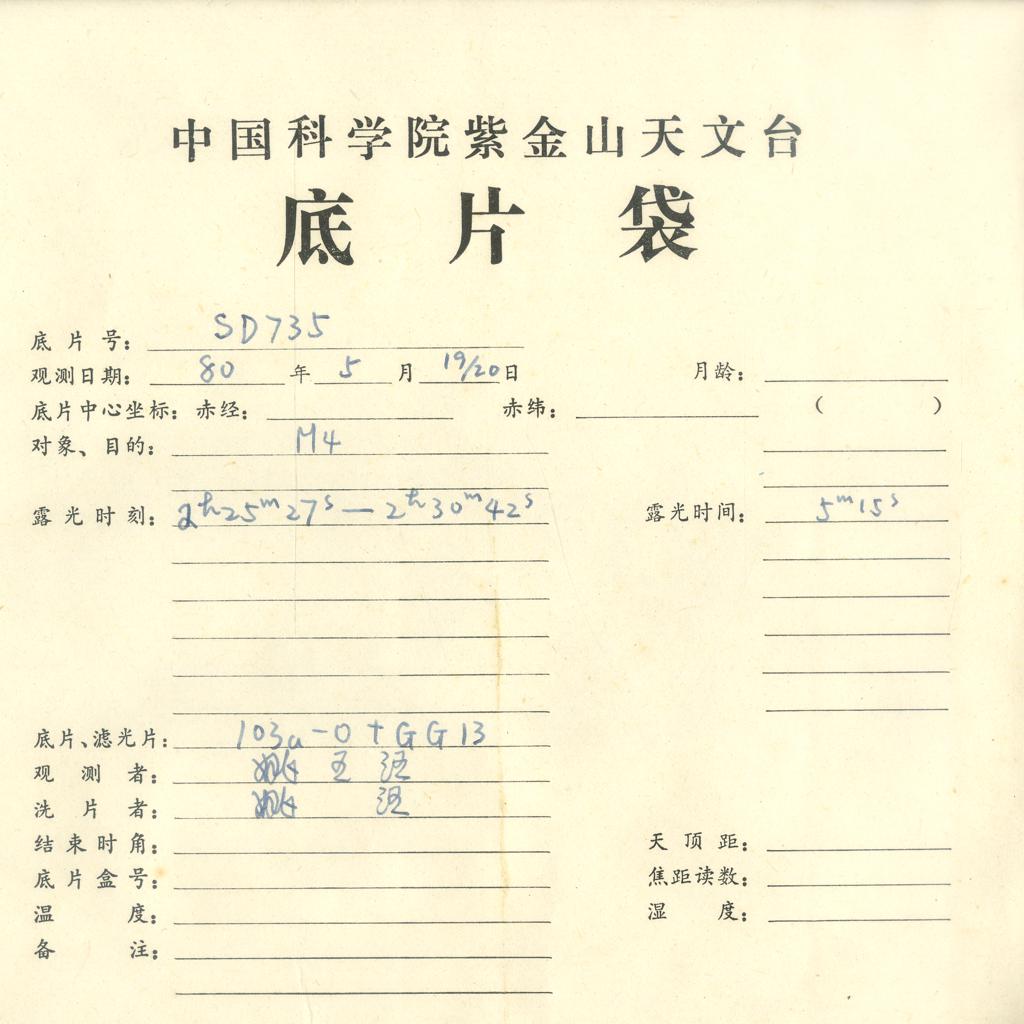 中国科学院紫金山天文台
底片袋
底片号: SD735
观测日期: 80 年 5 月 19/20 日 月龄:
底片中心坐标: 赤经: 赤纬: ( )
对象、目的: M4
露光时刻: 2h25m27s — 2h30m42s 露光时间: 5m15s
底片、滤光片: 103a-O+GG13
观测者: 王
洗片者:
结束时角: 天顶距:
底片盒号: 焦距读数:
温度: 湿度:
备注: